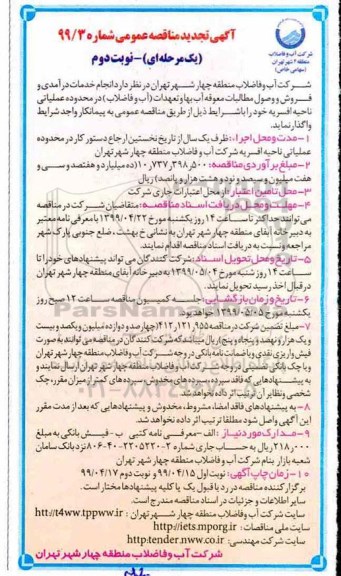 آگهی تجدید مناقصه عمومی شماره ۹۹/۳
(یک مرحله‌ای) - نوبت دوم
شرکت آب و فاضلاب
منطقه ۴ شهر تهران
(سهامی خاص)
شرکت آب و فاضلاب منطقه چهار شهر تهران در نظر دارد انجام خدمات درآمدی و
فروش و وصول مطالبات معوقه آب بها و تعهدات (آب و فاضلاب) در محدوده عملیاتی
ناحیه افسریه خود را با شرایط ذیل از طریق مناقصه عمومی به پیمانکار واجد شرایط
واگذار نماید.
۱- مدت و محل اجرا: ظرف یک سال از تاریخ نخستین ارجاع دستور کار در محدوده
عملیاتی ناحیه افسریه شرکت آب و فاضلاب منطقه چهار شهر تهران
۲- مبلغ برآوردی مناقصه: ۱۰,۷۳۷,۳۹۸,۵۰۰ (ده میلیارد و هفتصد و سی و
هفت میلیون و سیصد و نود و هشت هزار و پانصد) ریال
۳- محل تامین اعتبار: از محل اعتبارات جاری شرکت
۴- مهلت و محل دریافت اسناد مناقصه: متقاضیان شرکت در مناقصه
می توانند حداکثر تا ساعت ۱۴ روز یکشنبه مورخ ۱۳۹۹/۰۴/۲۲ با معرفی نامه معتبر
به دبیرخانه آبفای منطقه چهار شهر تهران به نشانی خ بهشت، ضلع جنوبی پارک شهر
مراجعه و نسبت به دریافت اسناد مناقصه اقدام نمایند.
۵- تاریخ و محل تحویل اسناد: شرکت کنندگان می تواند پیشنهادهای خود را تا
ساعت ۱۴ روز شنبه مورخ ۱۳۹۹/۰۵/۰۴ به دبیرخانه آبفای منطقه چهار شهر تهران
در قبال اخذ رسید تحویل نمایند.
۶- تاریخ و زمان بازگشایی: جلسه کمیسیون مناقصه ساعت ۱۲ صبح روز
یکشنبه مورخ ۱۳۹۹/۰۵/۰۵ خواهد بود.
۷- مبلغ تضمین شرکت در مناقصه ۴۱۲,۱۲۱,۹۵۵ (چهارصد و دوازده میلیون و یکصد و بیست
و یک هزار و نهصد و پنجاه و پنج) ریال میباشد که شرکت کنندگان در مناقصه می توانند به صورت
فیش واریزی نقدی یا ضمانت نامه بانکی در وجه شرکت آب و فاضلاب منطقه چهار شهر تهران
و یا چک بانکی تضمینی در وجه شرکت آب و فاضلاب منطقه چهار شهر تهران ارسال نمایند و
به پیشنهادهایی که فاقد سپرده، سپرده های مخدوش، سپرده های کمتر از میزان مقرر، چک
شخصی و نظایر آن ترتیب اثر داده نخواهد شد.
۸- به پیشنهادهای فاقد امضا، مشروط، مخدوش و پیشنهادهایی که بعد از مدت مقرر
این آگهی واصل شود مطلقا ترتیب اثر داده نخواهد شد.
۹- مدارک مورد نیاز: الف- معرفی نامه کتبی ب- فیش بانکی به مبلغ
۲۱۸,۰۰۰ ریال به حساب جاری شماره
نزد بانک سامان
شعبه بازار بنام شرکت آب و فاضلاب منطقه چهار شهر تهران
۱۰- زمان چاپ آگهی: نوبت اول ۹۹/۰۴/۱۵ و نوبت دوم ۹۹/۰۴/۱۷
برگزار کننده مناقصه در رد یا قبول یک یا کلیه پیشنهادها مختار است.
سایر اطلاعات و جزئیات در اسناد مناقصه مندرج است.
سایت شرکت آب و فاضلاب منطقه چهار شهر تهران : http://t4ww.tppww.ir
سایت ملی مناقصات: http://iets.mporg.ir
سایت شرکت مهندسی: http:tender.nww.co.ir
شرکت آب و فاضلاب منطقه چهار شهر تهران